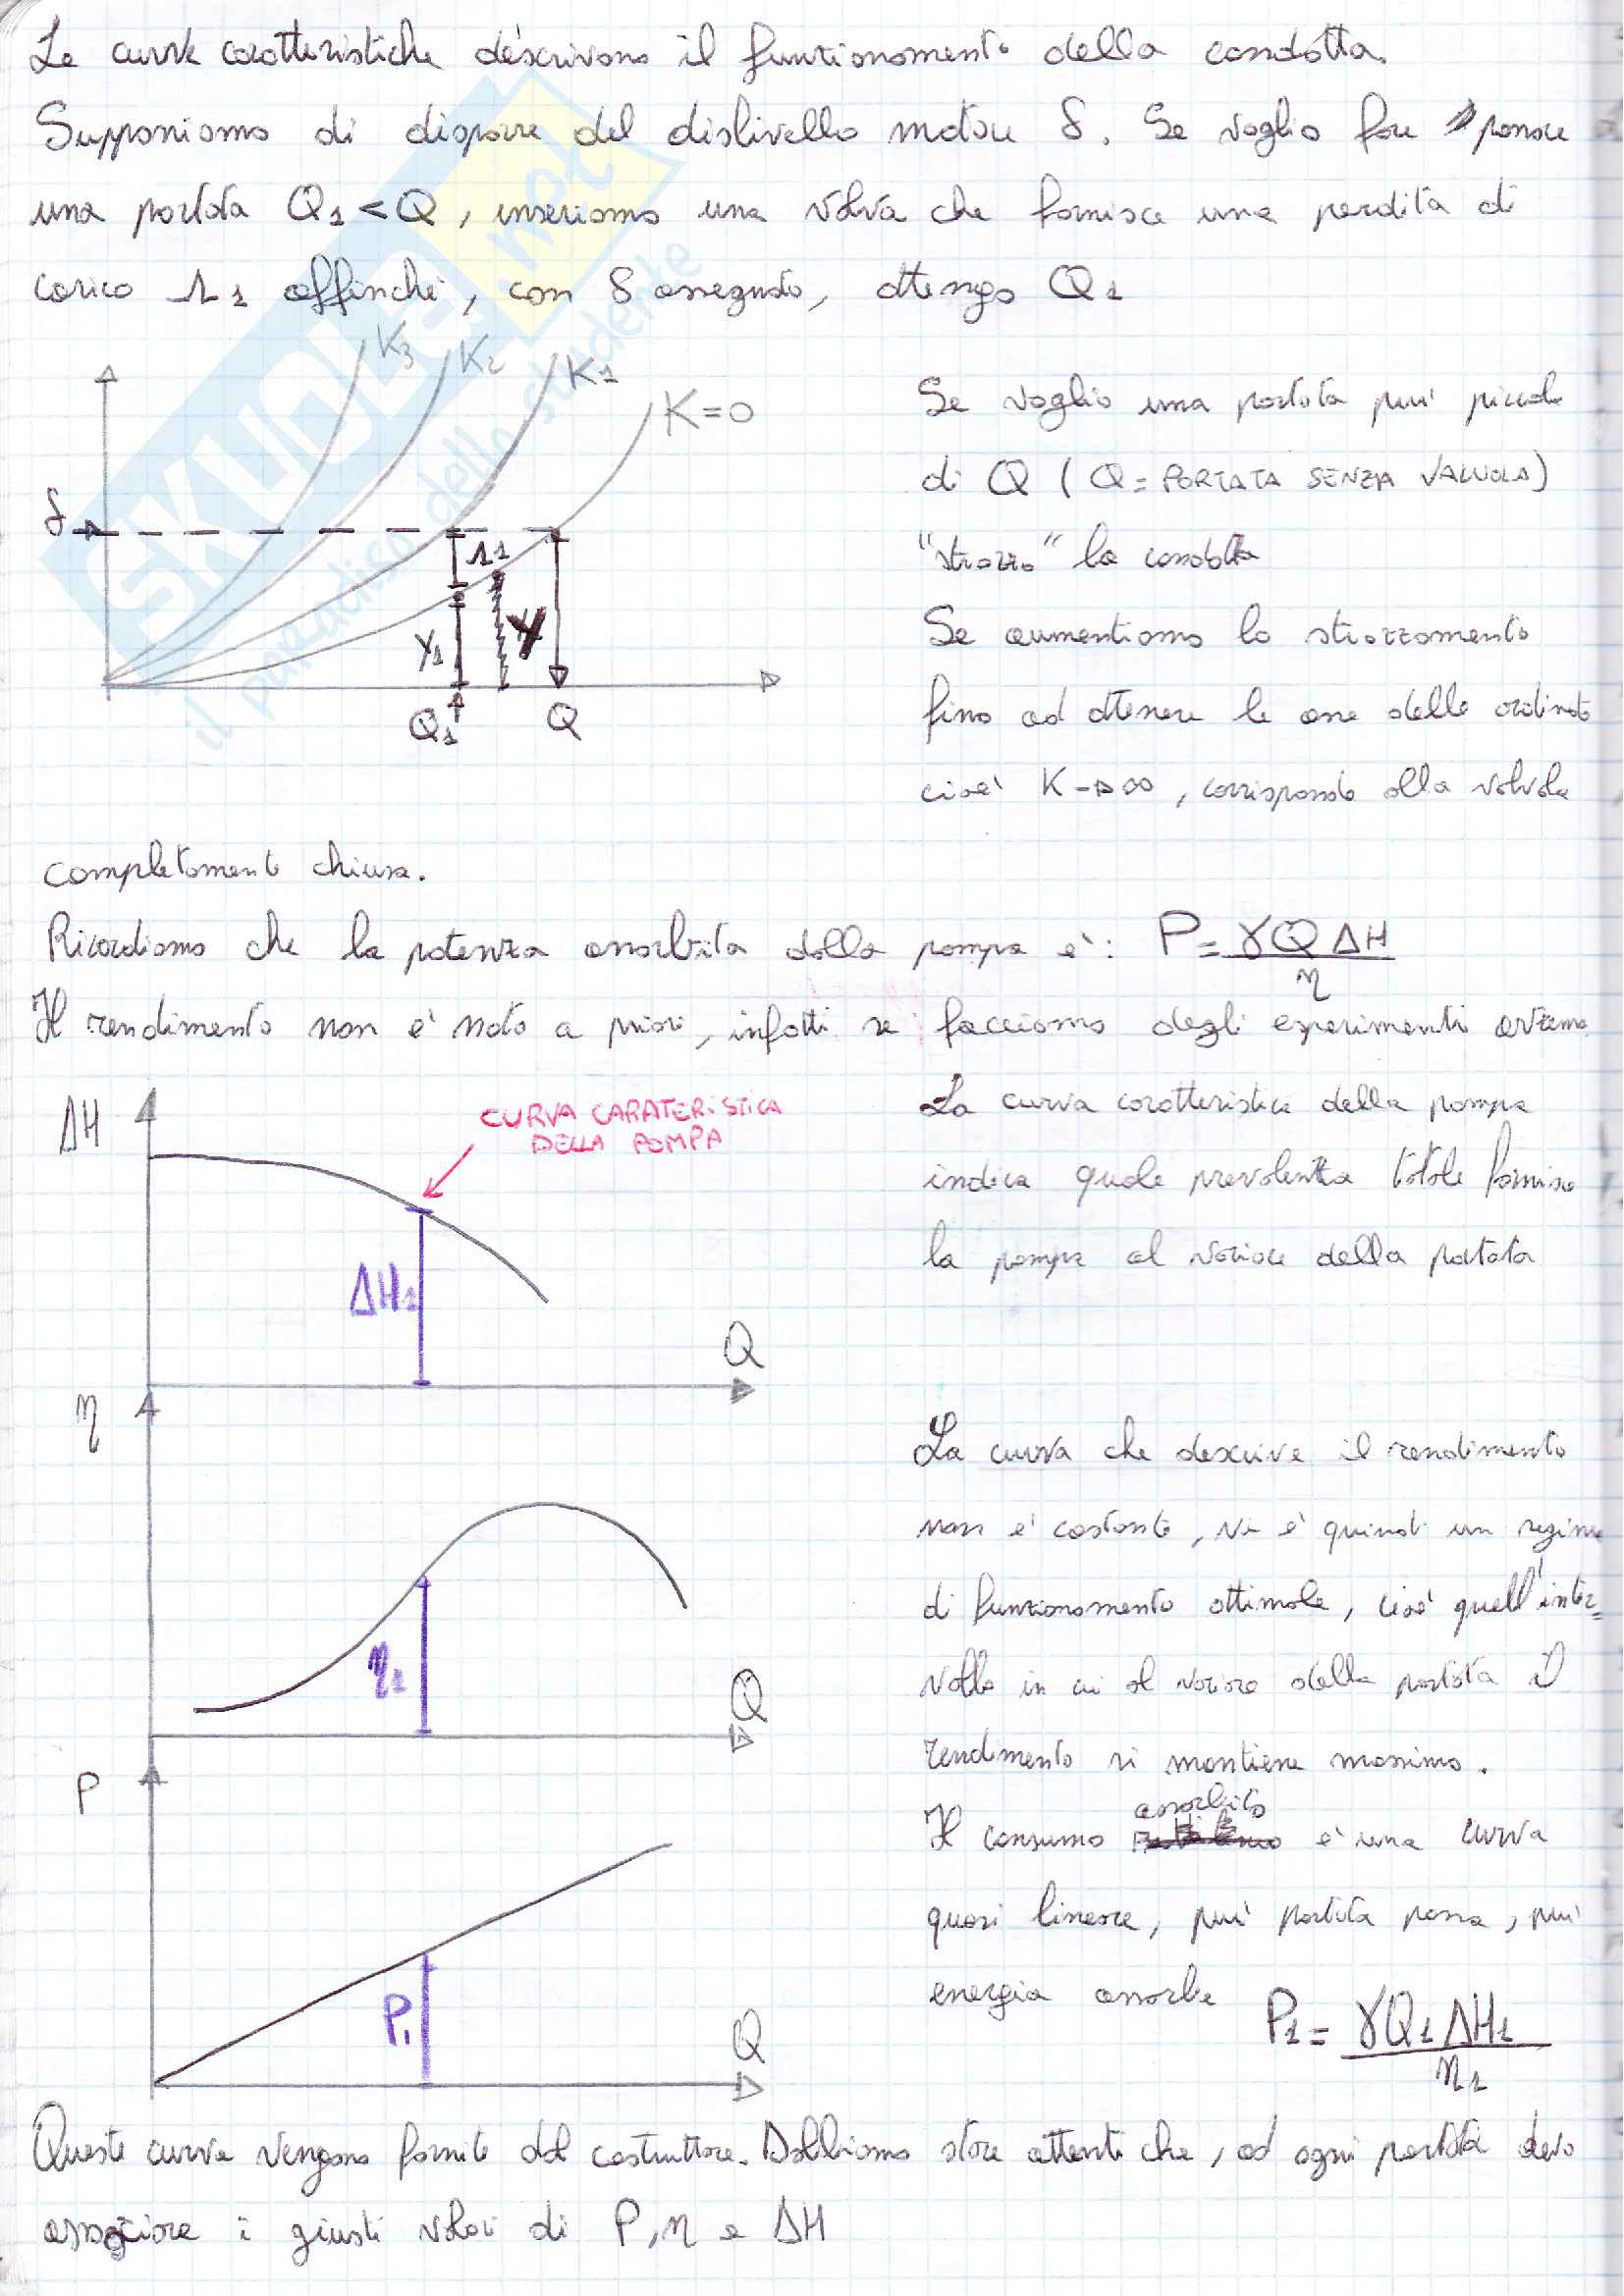 Le curve caratteristiche descrivono il funzionamento della condotta.
Supponiamo di disporre del dislivello motore δ. Se voglio fare passare
una portata Q1 < Q, inseriamo una valva che fornisce una perdita di
carico r1 affinché, con δ assegnato, ottengo Q1
K3
K2
K1
K=0
δ
r1
Y1
Y
Q1
Q
Se voglio una portata più piccola
di Q (Q = PORTATA SENZA VALVOLA)
"strozzo" la condotta
Se aumentiamo lo strozzamento
fino ad ottenere le asse delle ordinate
cioè K→∞, corrisponde alla valvola
completamente chiusa.
Ricordiamo che la potenza assorbita dalla pompa è: P = γQΔH / η
Il rendimento non è noto a priori, infatti se facciamo degli esperimenti avremo
ΔH
CURVA CARATERISTICA
DELLA POMPA
ΔH1
Q
La curva caratteristica della pompa
indica quale prevalenza totale fornisce
la pompa al variare della portata
η
η1
Q
La curva che descrive il rendimento
non è costante, vi è quindi un regime
di funzionamento ottimale, cioè quell'inter=
vallo in cui al variare della portata il
rendimento si mantiene massimo.
P
P1
Q
Il consumo assorbito è una curva
quasi lineare, più portata passa, più
energia assorbe P1 = γQ1ΔH1 / η1
Queste curve vengono fornite dal costruttore. Dobbiamo stare attenti che, ad ogni portata devo
associare i giusti valori di P, η e ΔH
SKUOLA.net
il paradiso dello studente